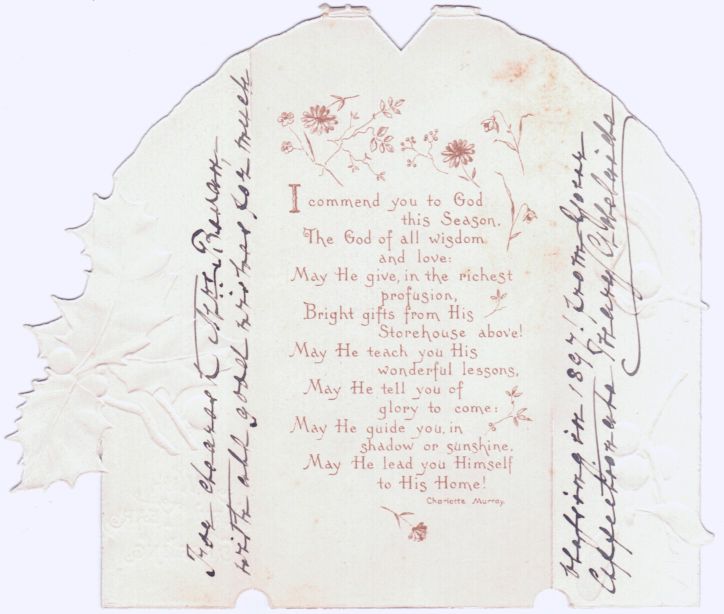 For dearest
with all good wishes for much
I commend you to God
this Season,
The God of all wisdom
and love:
May He give, in the richest
profusion,
Bright gifts from His
Storehouse above!
May He teach you His
wonderful lessons,
May He tell you of
glory to come:
May He guide you, in
shadow or sunshine,
May He lead you Himself
to His Home!
Charlotte Murray.
blessing in 1897! From Your
Affectionate Mary Adelaide